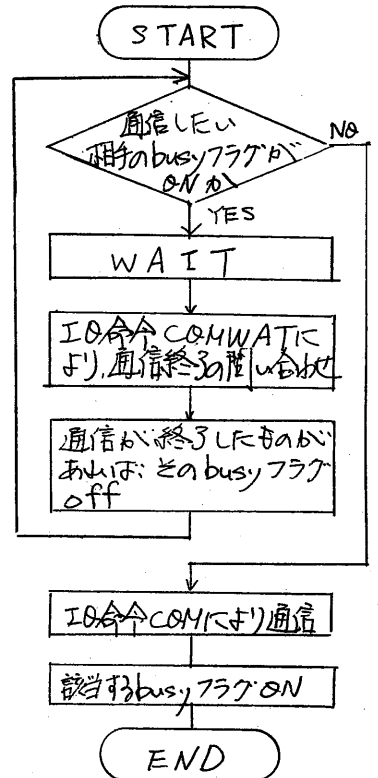 START
通信したい
相手のbusyフラグが
ONか
NO
YES
WAIT
IO命令COMWATに
より,通信終了の問い合わせ
通信が終了したものが
あれば、そのbusyフラグ
off
IO命令COMにより通信
該当するbusyフラグON
END